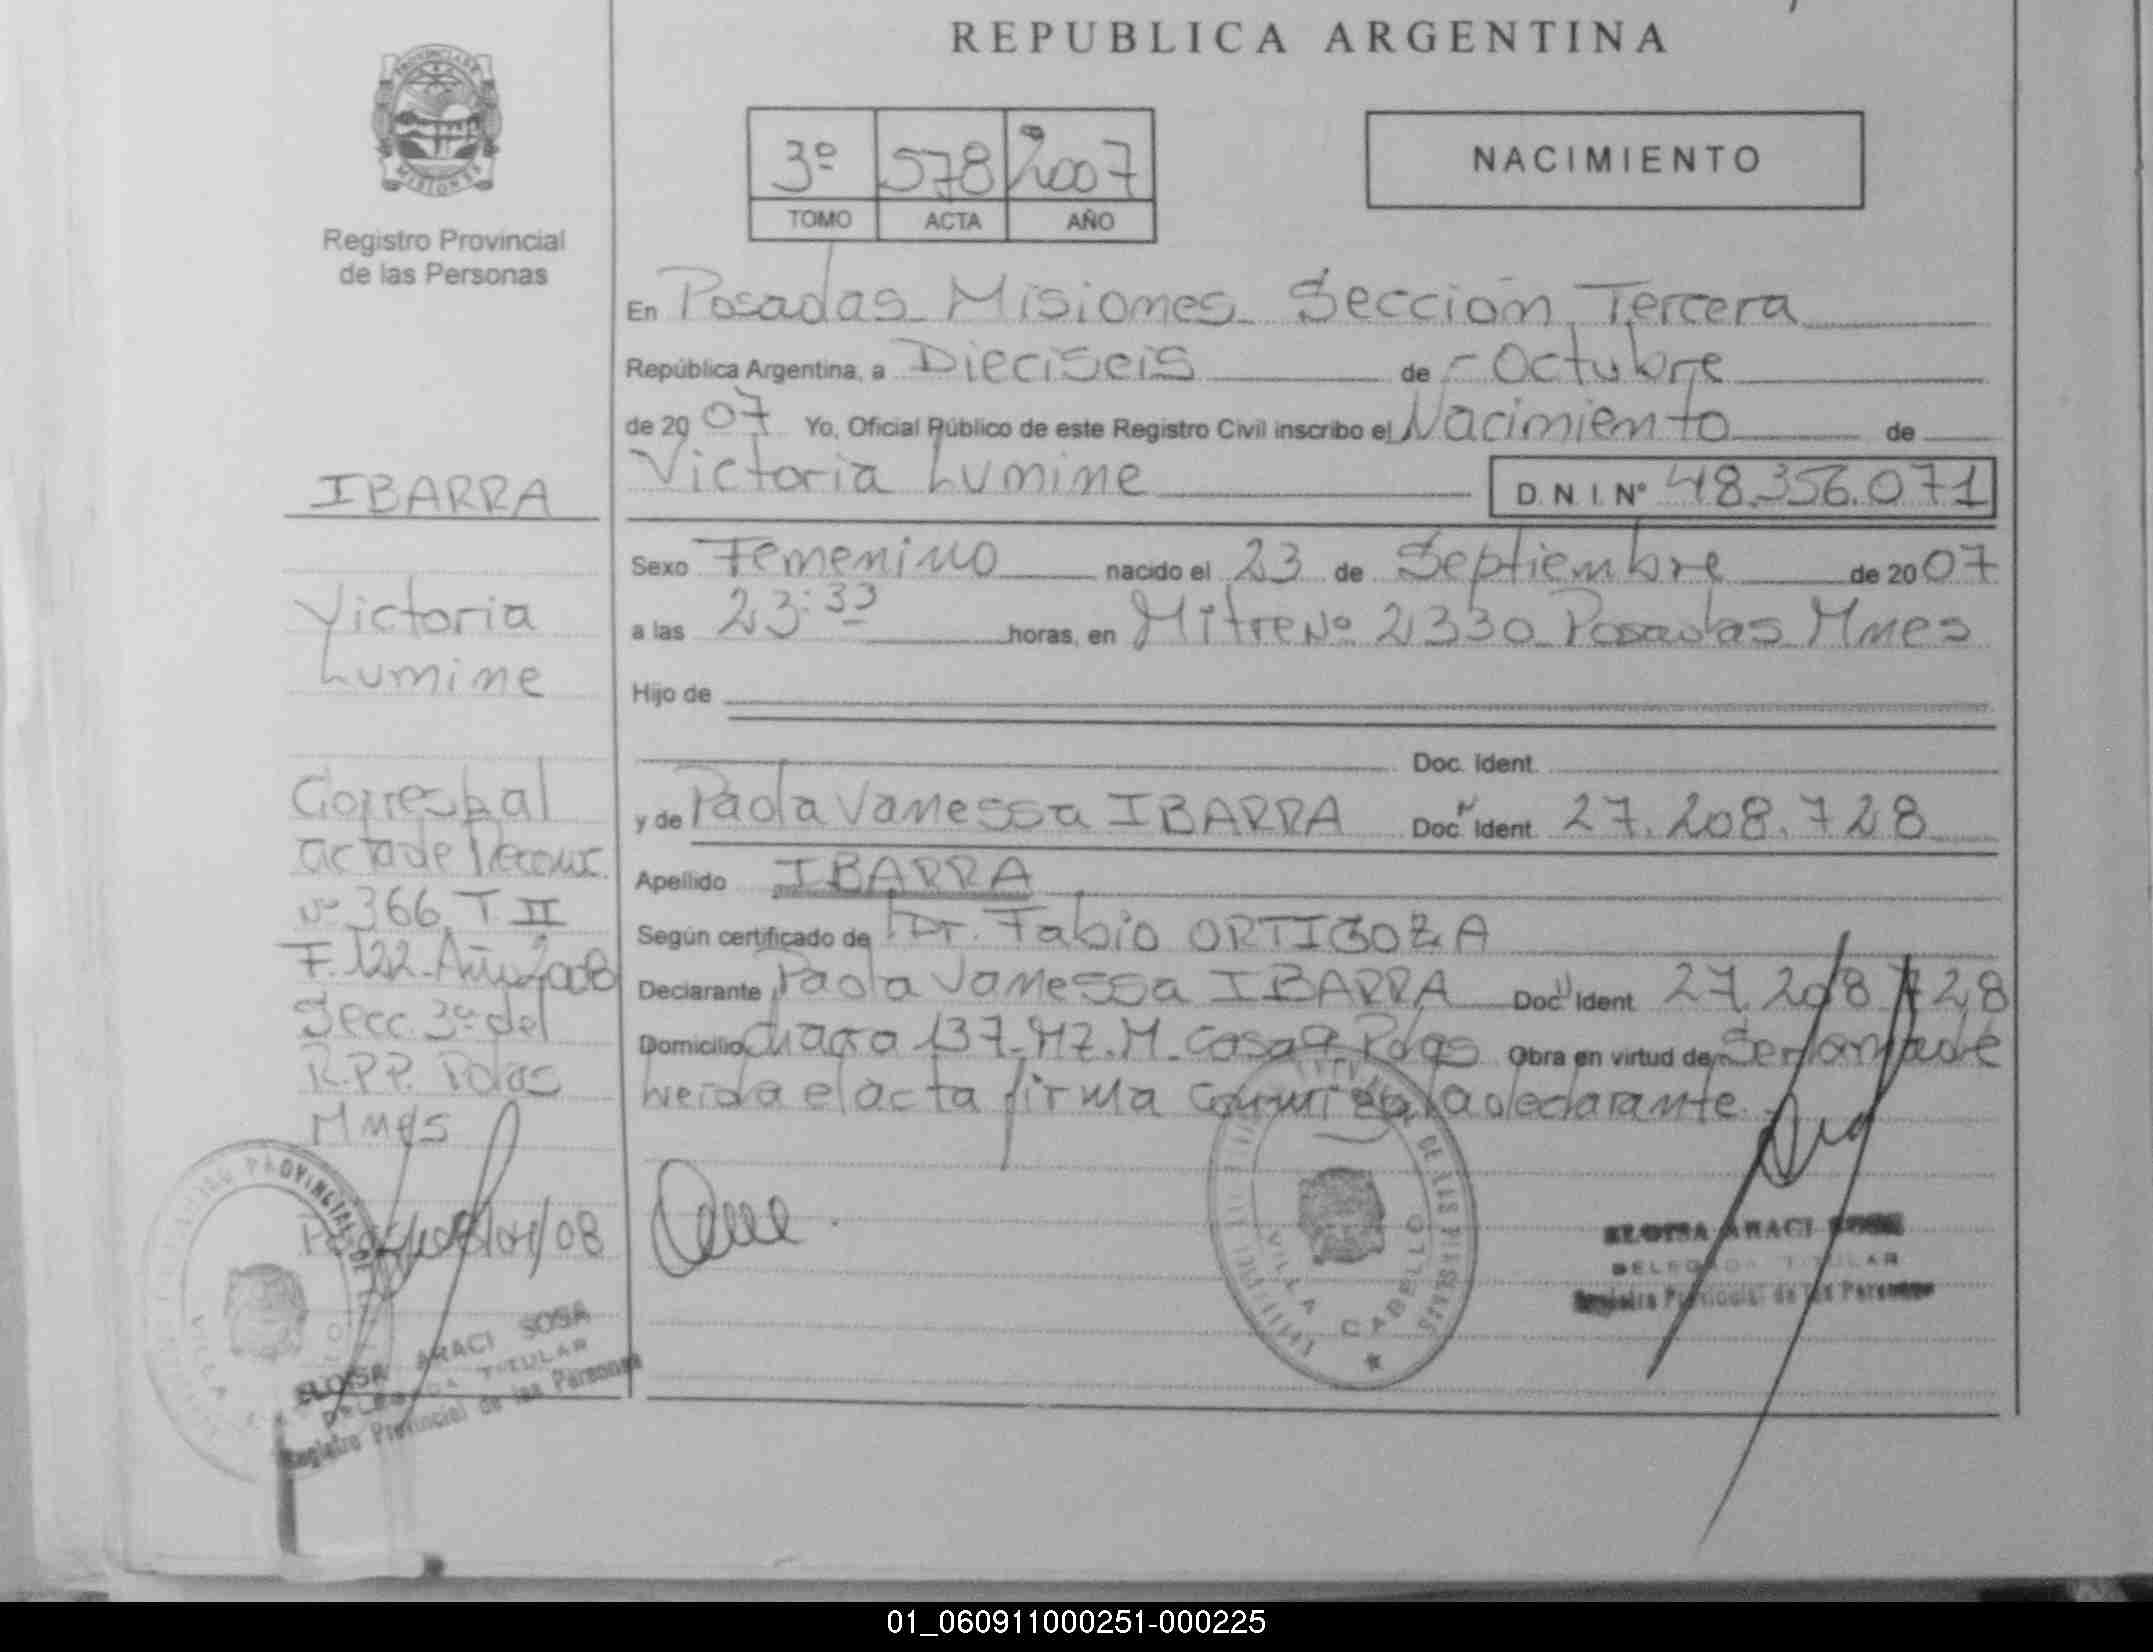 REPUBLICA ARGENTINA
PROVINCIA DE
MISIONES
Registro Provincial
de las Personas
3º 578 2007
TOMO ACTA AÑO
NACIMIENTO
En Posadas Misiones Sección Tercera
República Argentina, a Dieciseis de Octubre
de 2007 Yo, Oficial Público de este Registro Civil inscribo el Nacimiento de
Victoria Lumine D.N.I.Nº 48.356.071
Sexo Femenino nacido el 23 de Septiembre de 2007
a las 23:33 horas, en Mitre Nº 2330 Posadas Mnes
Hijo de
Doc. Ident.
y de Paola Vanessa IBARRA Doc. Ident. 27.208.728
Apellido IBARRA
Según certificado de Dr. Fabio ORTIGOZA
Declarante Paola Vanessa IBARRA Doc. Ident. 27.208.728
Domicilio Chacra 137-MZ.M-Casa 9 Pdas Obra en virtud de Ser la madre
leida el acta firma la declarante
IBARRA
Victoria
Lumine
Corresp al
acta de Reconc.
Nº 366 T II
F. 122 Año 2008
Secc. 3ª del
R.P.P. Pdas
Mnes
/08
REGISTRO PROVINCIAL DE
VILLA
ELOISA ARACI SOSA
DELEGADA TITULAR
Registro Provincial de las Personas
DE LAS PERSONAS
VILLA CABELLO
ELOISA ARACI SOSA
DELEGADA TITULAR
Registro Provincial de las Personas
01_060911000251-000225